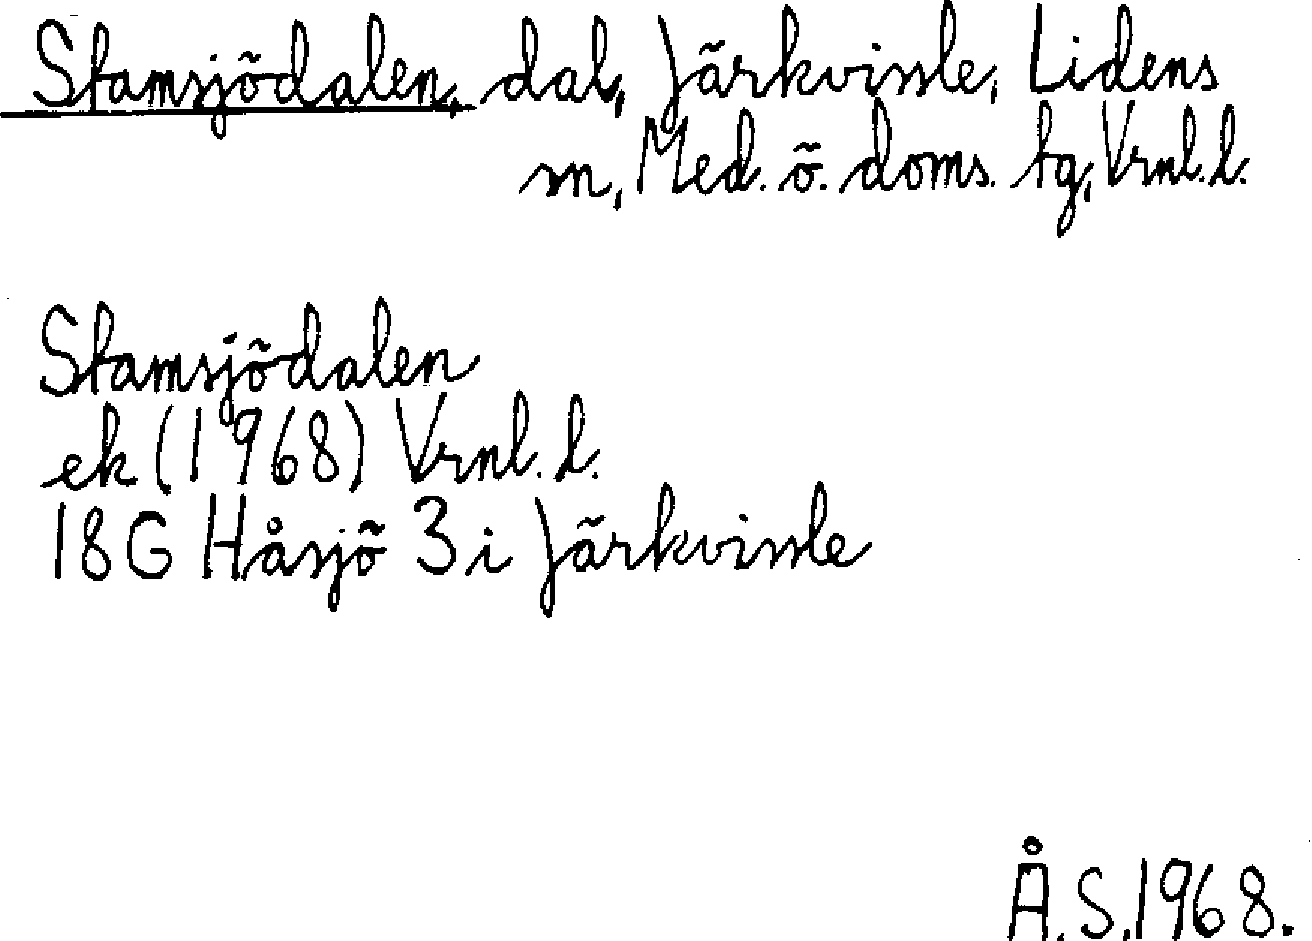 Stamsjödalen, dal, Järkvissle, Lidens
sn, Med. ö. doms. tg, Vrnl. l.
Stamsjödalen
ek (1968) Vrnl. l.
18G Håsjö 3i Järkvissle
Å.S. 1968.